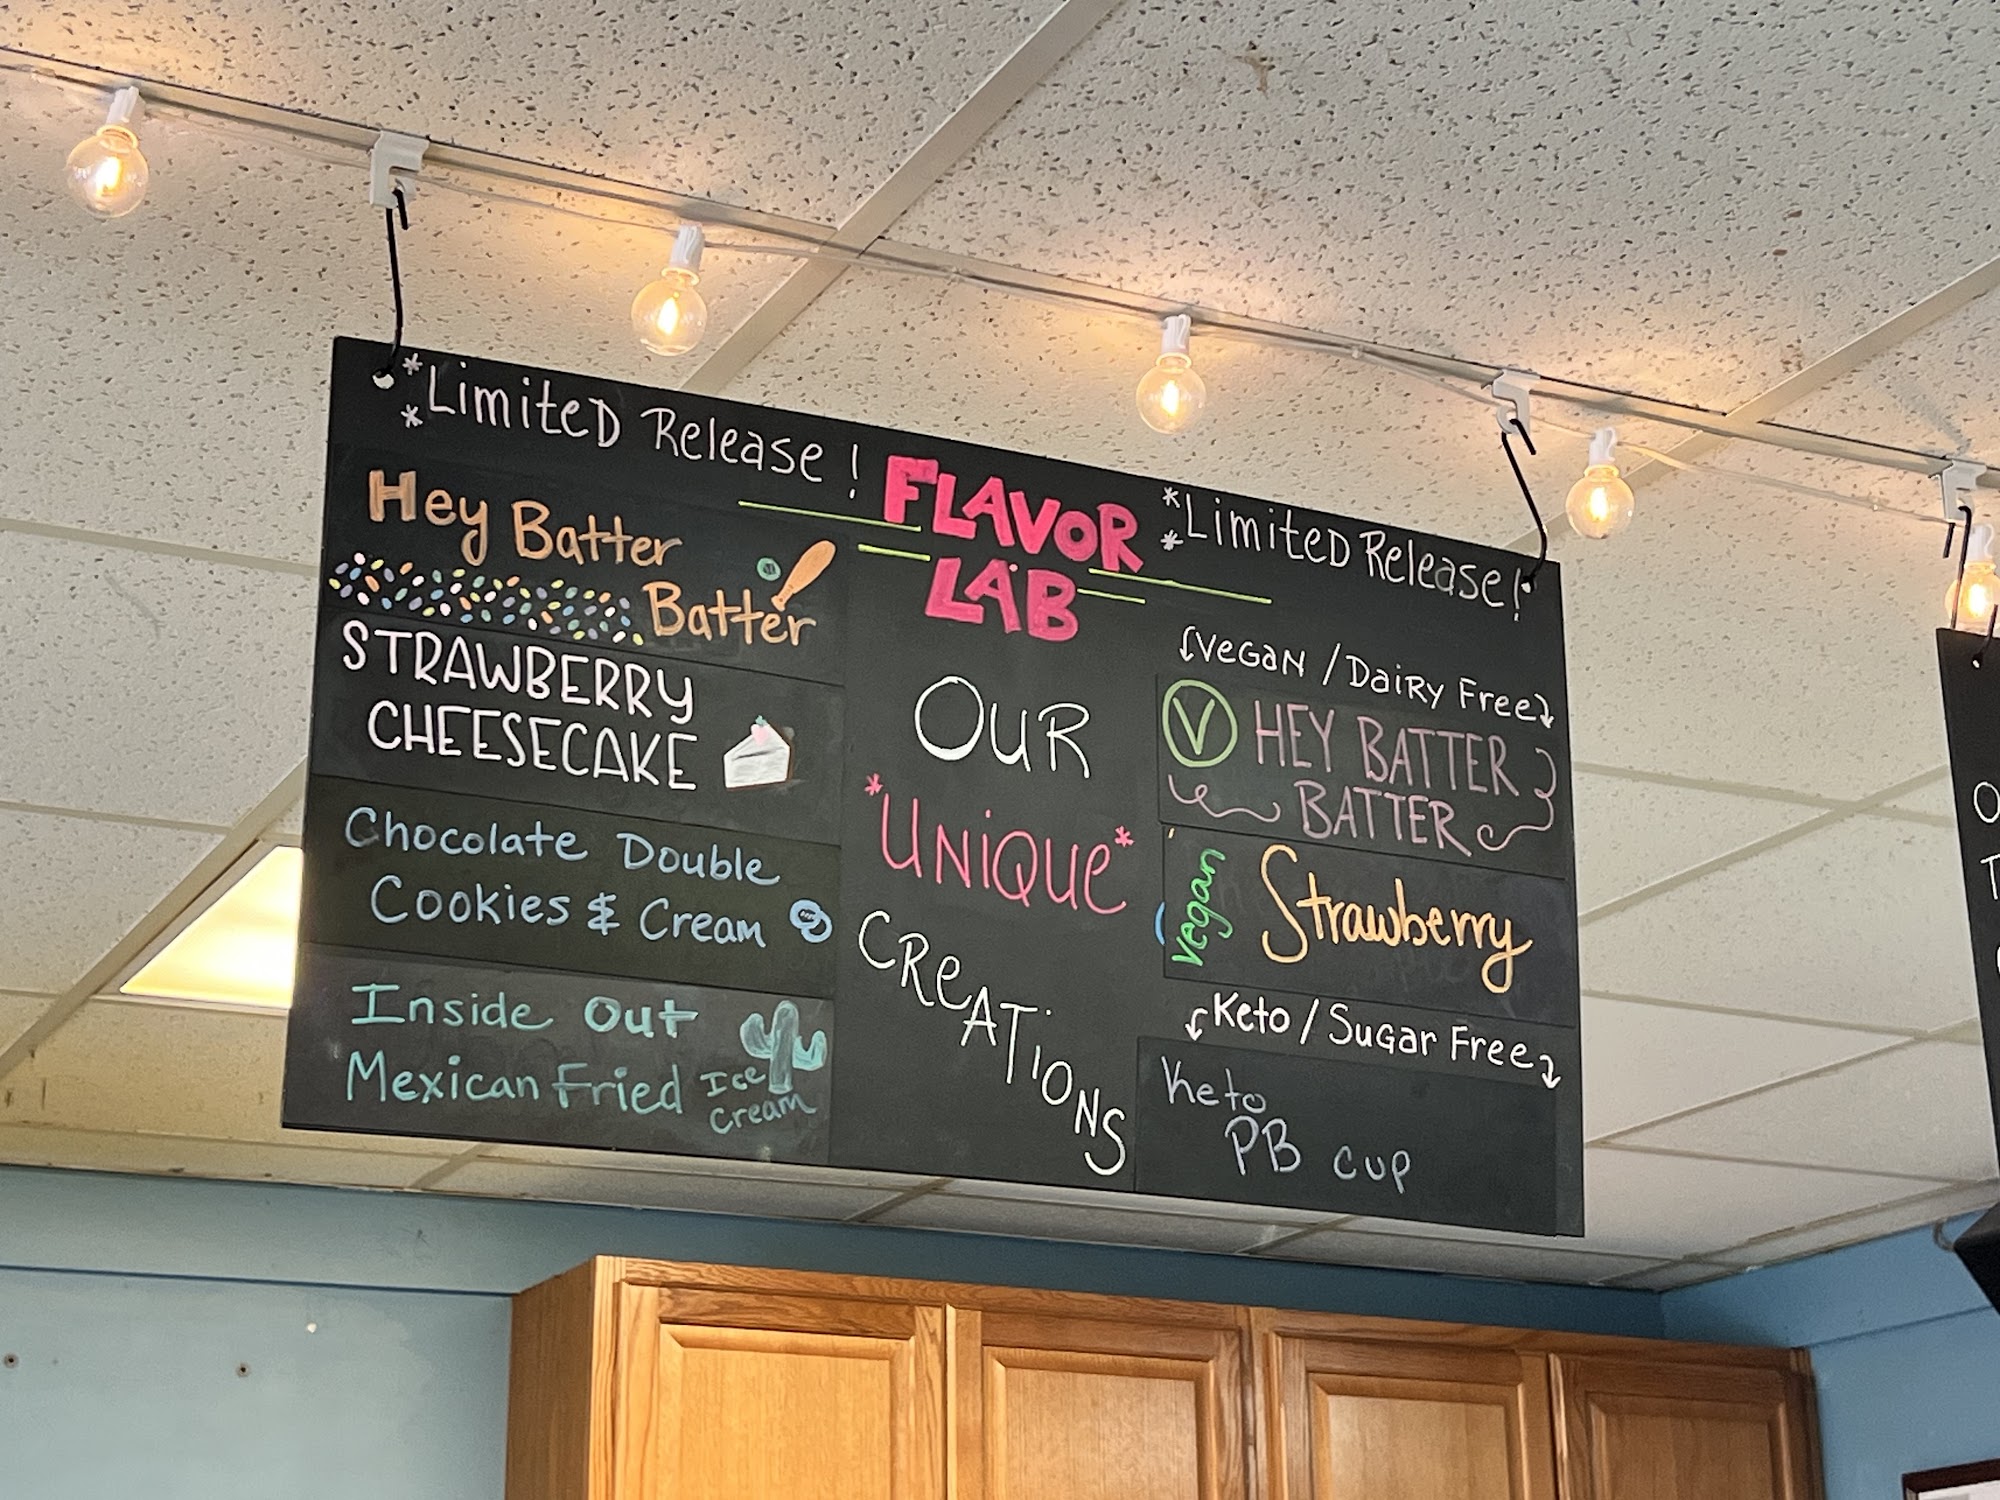 *Limited Release!
*
Hey Batter
Batter
STRAWBERRY
CHEESECAKE
Chocolate Double
Cookies & Cream
Inside Out
Mexican Fried Ice
Cream
FLAVOR
LAB
OUR
*UNIQUE*
CREATIONS
*Limited Release!
*
Vegan / Dairy Free
V HEY BATTER
BATTER
Vegan Strawberry
Keto / Sugar Free
Keto
PB cup